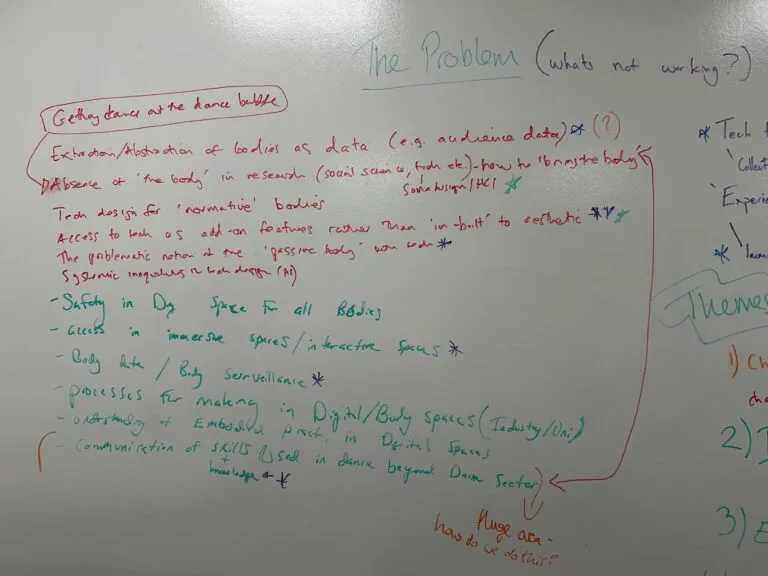 The Problem (whats not working?)
Getting dance out the dance bubble
Extraction/Abstraction of bodies as data (e.g. audience data) * (?)
Absence of 'the body' in research (social science, tech etc) - how to 'bring the body'
Soma design/HCI
Tech design for 'normative' bodies
Access to tech as add-on features rather than 'in-built' to aesthetic **
The problematic notion of the 'passive body' with tech *
Systemic inequalities in tech design (AI)
- Safety in Dig Space for all Bodies
- access in immersive spaces/interactive spaces *
- Body data / Body surveillance *
- processes for making in Digital/Body spaces (Industry/Uni)
- understanding of Embodied pract. in Digital Spaces
- Communication of skills Used in dance beyond Dance Sector
+ knowledge *
Huge area -
how do we do this?
* Tech
Collect
Experie
*
Themes
1) Ch
cha
2)
3) E